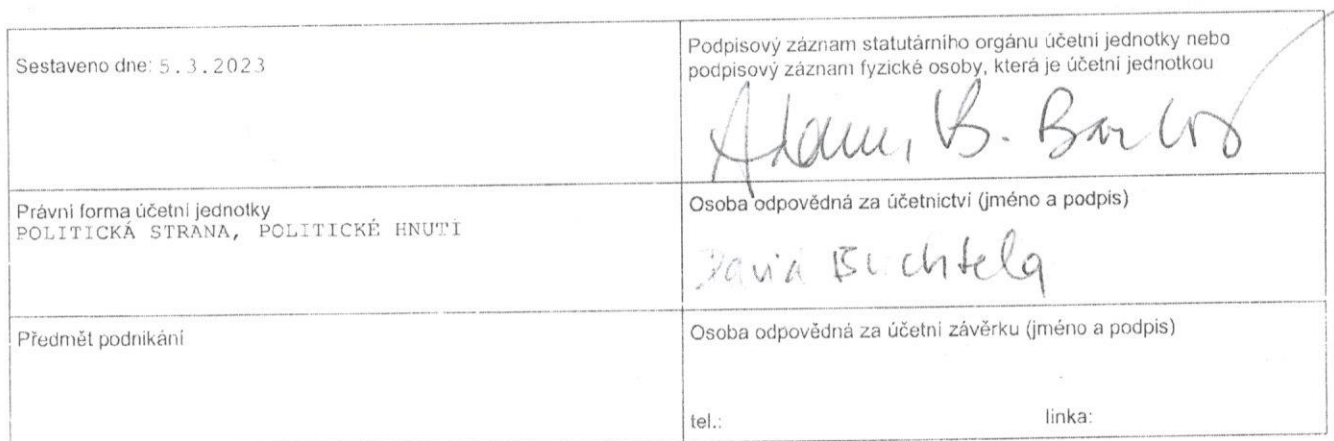 Sestaveno dne: 5.3.2023
Podpisový záznam statutárního orgánu účetní jednotky nebo
podpisový záznam fyzické osoby, která je účetní jednotkou
Adam, B. Bartoš
Právní forma účetní jednotky
POLITICKÁ STRANA, POLITICKÉ HNUTÍ
Osoba odpovědná za účetnictví (jméno a podpis)
David Buchtela
Předmět podnikání
Osoba odpovědná za účetní závěrku (jméno a podpis)
tel.: linka: